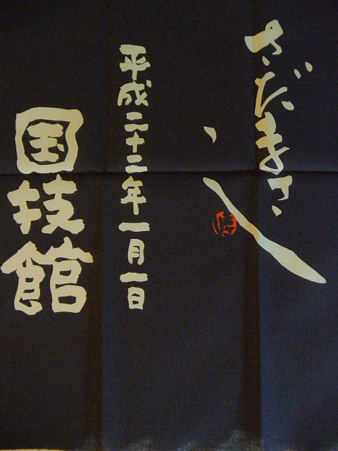 さだまさし
平成二十二年一月一日
国技館